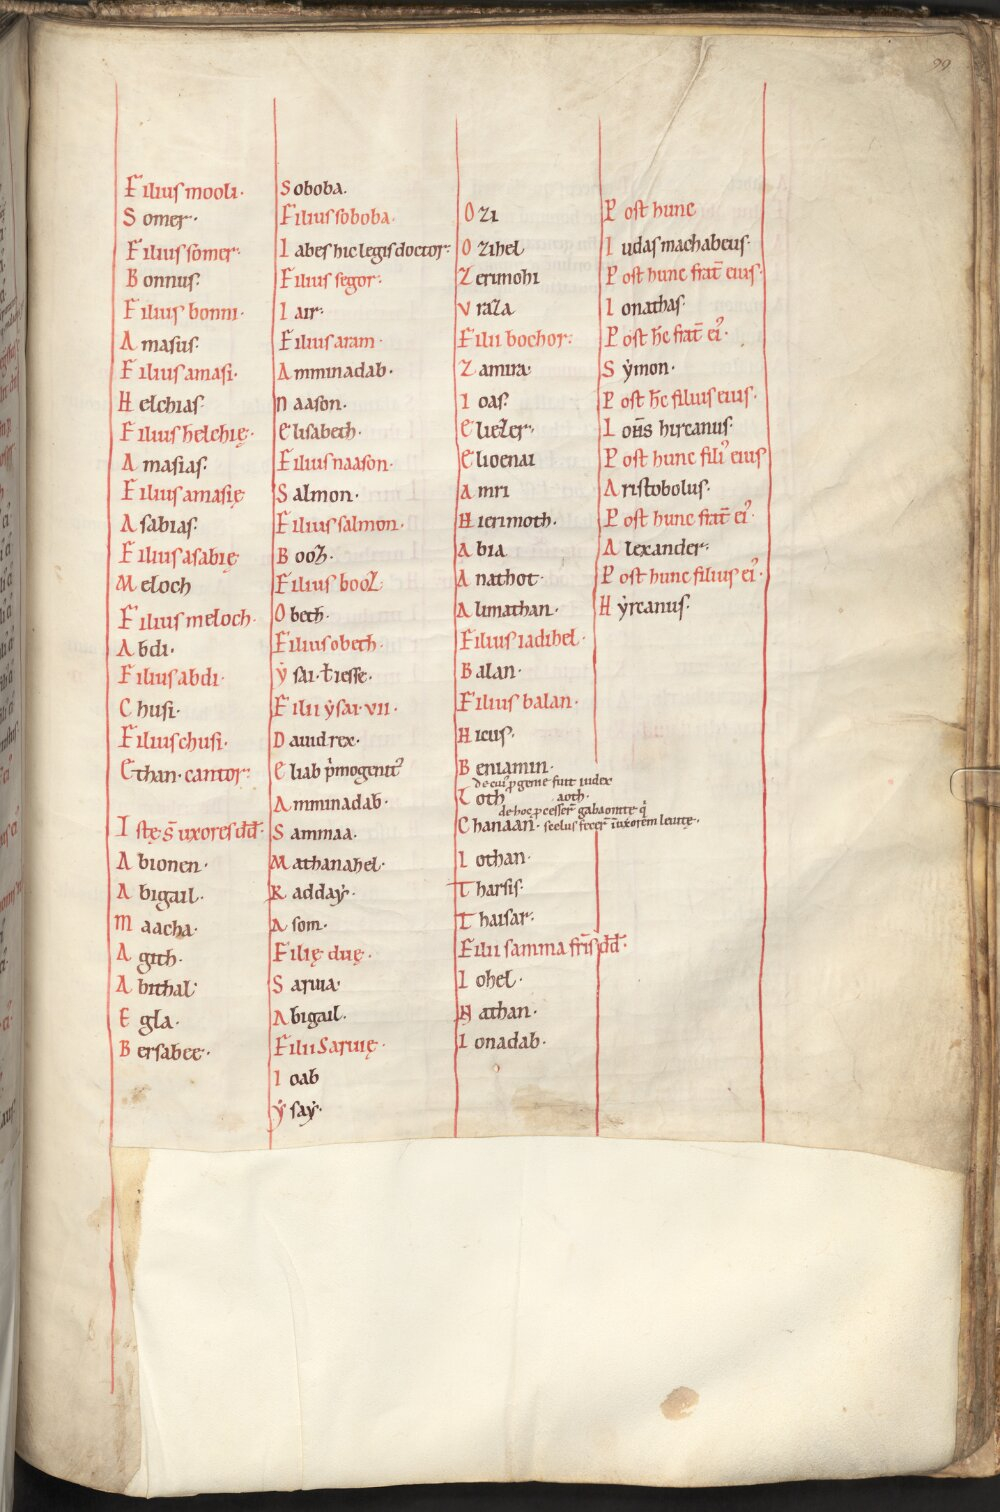 99
Filius mooli·
Somer·
Filius somer·
Bonnus·
Filius bonni·
Amasus·
Filius amasi·
Helchias·
Filius helchię·
Amasias·
Filius amasię
Asabias·
Filius asabię
Meloch
Filius meloch·
Abdi·
Filius abdi·
Chusi·
Filius chusi·
Ethan· cantor·
Istę s̄ uxores dd̄·
Abionen·
Abigail·
Maacha·
Agith·
Abithal·
Egla·
Bersabee·
Soboba·
Filius soboba·
Iabes hic legis doctor·
Filius segor·
Iair·
Filius aram·
Amminadab·
Naason·
Elisabeth·
Filius naason·
Salmon·
Filius salmon·
Booz·
Filius booz
Obeth·
Filius obeth·
ẏsai· ł iesse·
Filii ẏsai· vii·
Dauid rex·
Eliab p̄mogenit᾽
Amminadab·
Sammaa·
Mathanahel·
Raddaẏ·
Asom·
Filię duę·
Saruia·
Abigail·
Filii Saruię·
Ioab
ẏsaẏ·
Ozi
Ozihel
Zerimohi
Vraza
Filii bochor·
Zamira·
Ioas·
Eliezer·
Elioenai
Amri
Hierimoth·
Abia
Anathot·
Almathan·
Filius iadihel·
Balan·
Filius balan·
Hieus·
Beniamin·
de cui᾽ ꝓgenie fuit iudex
Loth aoth·
de hoc ꝓcesser̄ gabaonite q̇
Chanaan· scelus fecer̄ ī uxorem leuitę·
Iothan·
Tharsis·
Thaisar·
Filii samma fr̄is dd̄·
Iohel·
Nathan·
Ionadab·
Post hunc
Iudas machabeus·
Post hunc frat̄ eius·
Ionathas·
Post h̄c frat̄ ei᾽·
Sẏmon·
Post h̄c filius eius·
Ioh̄s hircanus·
Post hunc fili᾽ eius
Aristobolus·
Post hunc frat̄ ei᾽·
Alexander·
Post hunc filius ei᾽·
Hẏrcanus·